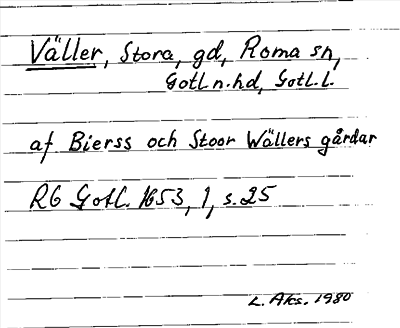 Väller, Stora, gd, Roma sn,
Gotl. n. hd, Gotl. l.
af Bierss och Stoor Wällers gårdar
RG Gotl. 1653, 1, s. 25
L. Aks. 1980